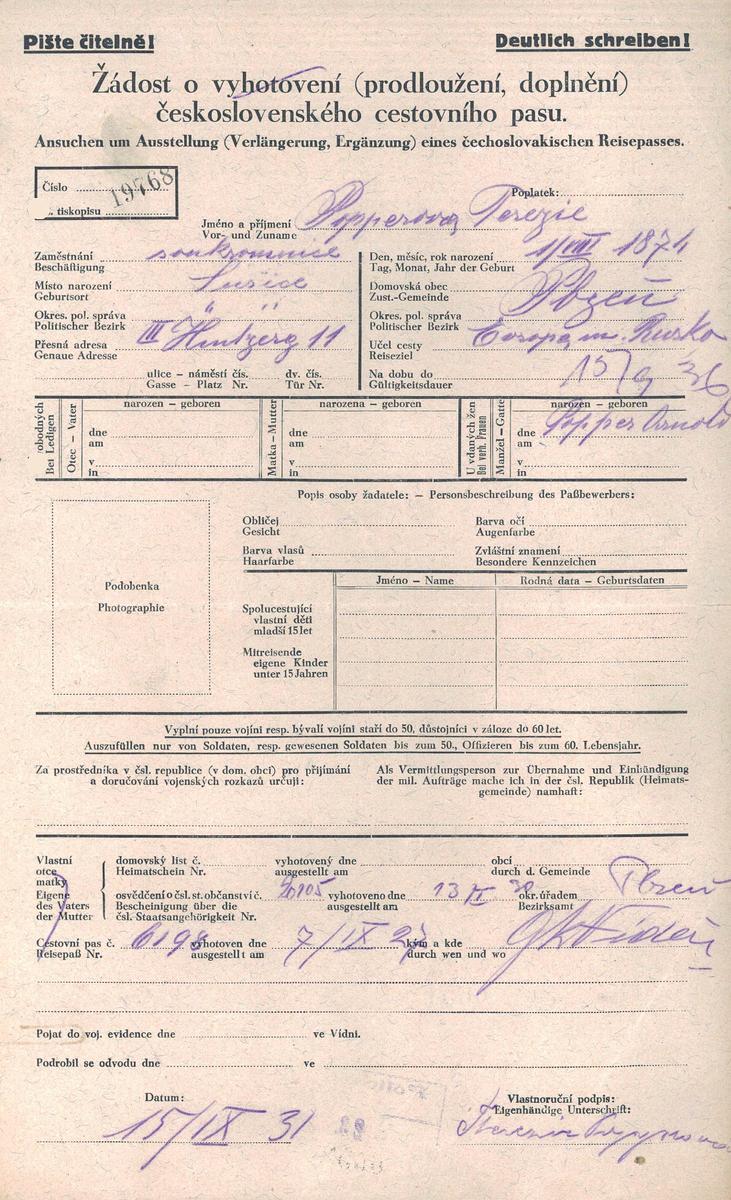 Pište čitelně! Deutlich schreiben!
Žádost o vyhotovení (prodloužení, doplnění)
československého cestovního pasu.
Ansuchen um Ausstellung (Verlängerung, Ergänzung) eines čechoslovakischen Reisepasses.
Číslo 19768
„ tiskopisu
Poplatek:
Jméno a příjmení Popperova Terezie
Vor- und Zuname
Zaměstnání soukromnice
Beschäftigung
Den, měsíc, rok narození 1/VIII 1874
Tag, Monat, Jahr der Geburt
Místo narození Sušice
Geburtsort
Domovská obec Plzeň
Zust.-Gemeinde
Okres. pol. správa " "
Politischer Bezirk
Okres. pol. správa
Politischer Bezirk
Přesná adresa III 11
Genaue Adresse
Účel cesty Evropa m. Rusko
Reiseziel
ulice – náměstí čís. dv. čís.
Gasse – Platz Nr. Tür Nr.
Na dobu do 15/9 36
Gültigkeitsdauer
U svobodných
Bei Ledigen
Otec – Vater
narozen – geboren
dne
am
v
in
Matka – Mutter
narozena – geboren
dne
am
v
in
U vdaných žen
Bei verh. Frauen
Manžel – Gatte
narozen – geboren
Popper Arnold
dne
am
v
in
Popis osoby žadatele: – Personsbeschreibung des Paßbewerbers:
Obličej
Gesicht
Barva očí
Augenfarbe
Barva vlasů
Haarfarbe
Zvláštní znamení
Besondere Kennzeichen
Podobenka
Photographie
Jméno – Name Rodná data – Geburtsdaten
Spolucestující
vlastní děti
mladší 15 let
Mitreisende
eigene Kinder
unter 15 Jahren
Vyplní pouze vojíni resp. bývalí vojíni staří do 50, důstojníci v záloze do 60 let.
Auszufüllen nur von Soldaten, resp. gewesenen Soldaten bis zum 50., Offizieren bis zum 60. Lebensjahr.
Za prostředníka v čsl. republice (v dom. obci) pro přijímání
a doručování vojenských rozkazů určuji:
Als Vermittlungsperson zur Übernahme und Einhändigung
der mil. Aufträge mache ich in der čsl. Republik (Heimats-
gemeinde) namhaft:
Vlastní
otce
matky
Eigene
des Vaters
der Mutter
domovský list č. vyhotovený dne obcí
Heimatschein Nr. ausgestellt am durch d. Gemeinde
osvědčení o čsl. st. občanství č. 20105 vyhotoveno dne 13 II 30 okr. úřadem Plzeň
Bescheinigung über die ausgestellt am Bezirksamt
čsl. Staatsangehörigkeit Nr.
Cestovní pas č. 6198 vyhotoven dne 7/IX 27 kým a kde GK Vídeň
Reisepaß Nr. ausgestellt am durch wen und wo
Pojat do voj. evidence dne ve Vídni.
Podrobil se odvodu dne ve
Datum:
15/IX 31
Vlastnoruční podpis:
Eigenhändige Unterschrift: